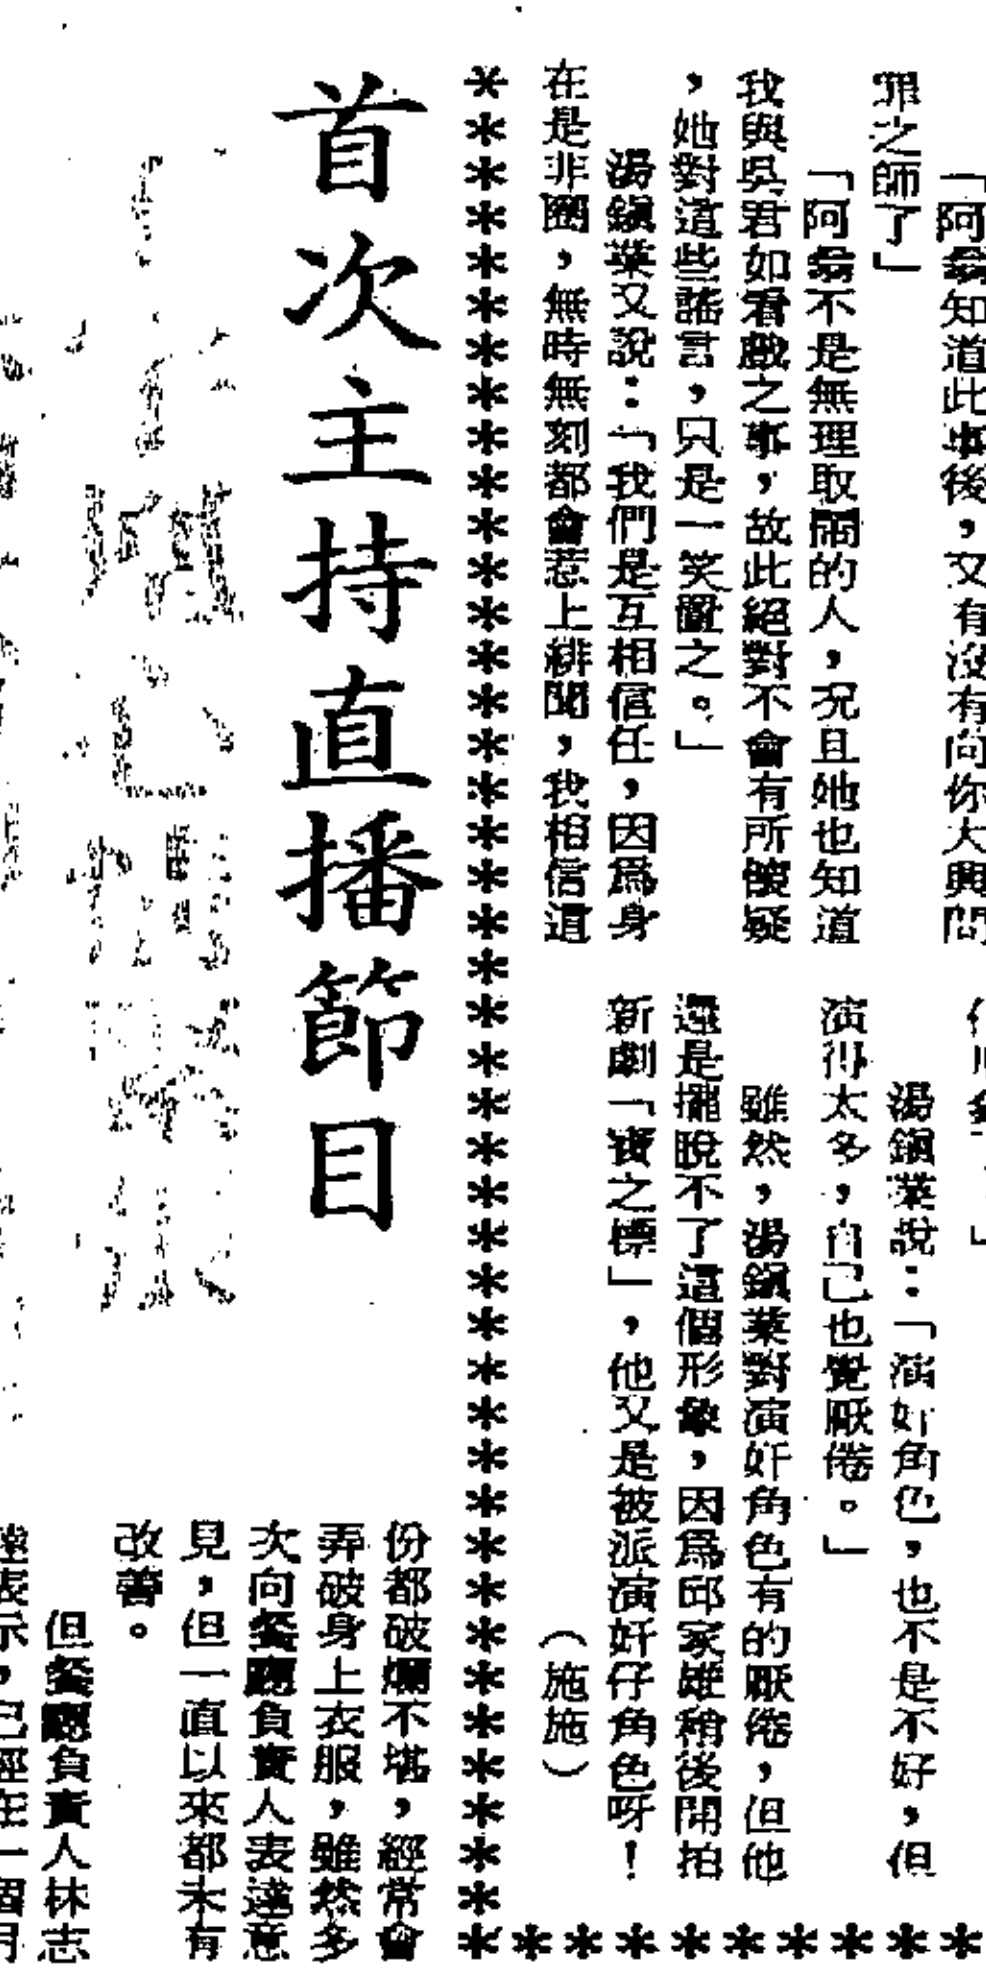 「阿翕知道此事後，又有沒有向你大興問
罪之師了」
「阿翕不是無理取鬧的人，況且她也知道
我與吳君如看戲之事，故此絕對不會有所懷疑
，她對這些謠言，只是一笑置之。」
湯鎮業又說：「我們是互相信任，因爲身
在是非圈，無時無刻都會惹上緋聞，我相信這
湯鎮業說：「演奸角色，也不是不好，但
演得太多，自己也覺厭倦。」
雖然，湯鎮業對演奸角色有的厭倦，但他
還是擺脫不了這個形象，因爲邱家雄稍後開拍
新劇「寶之標」，他又是被派演奸仔角色呀！
（施施）
首次主持直播節目
份都破爛不堪，經常會
弄破身上衣服，雖然多
次向餐廳負責人表達意
見，但一直以來都未有
改善。
但餐廳負責人林志
表示，已經在一個月